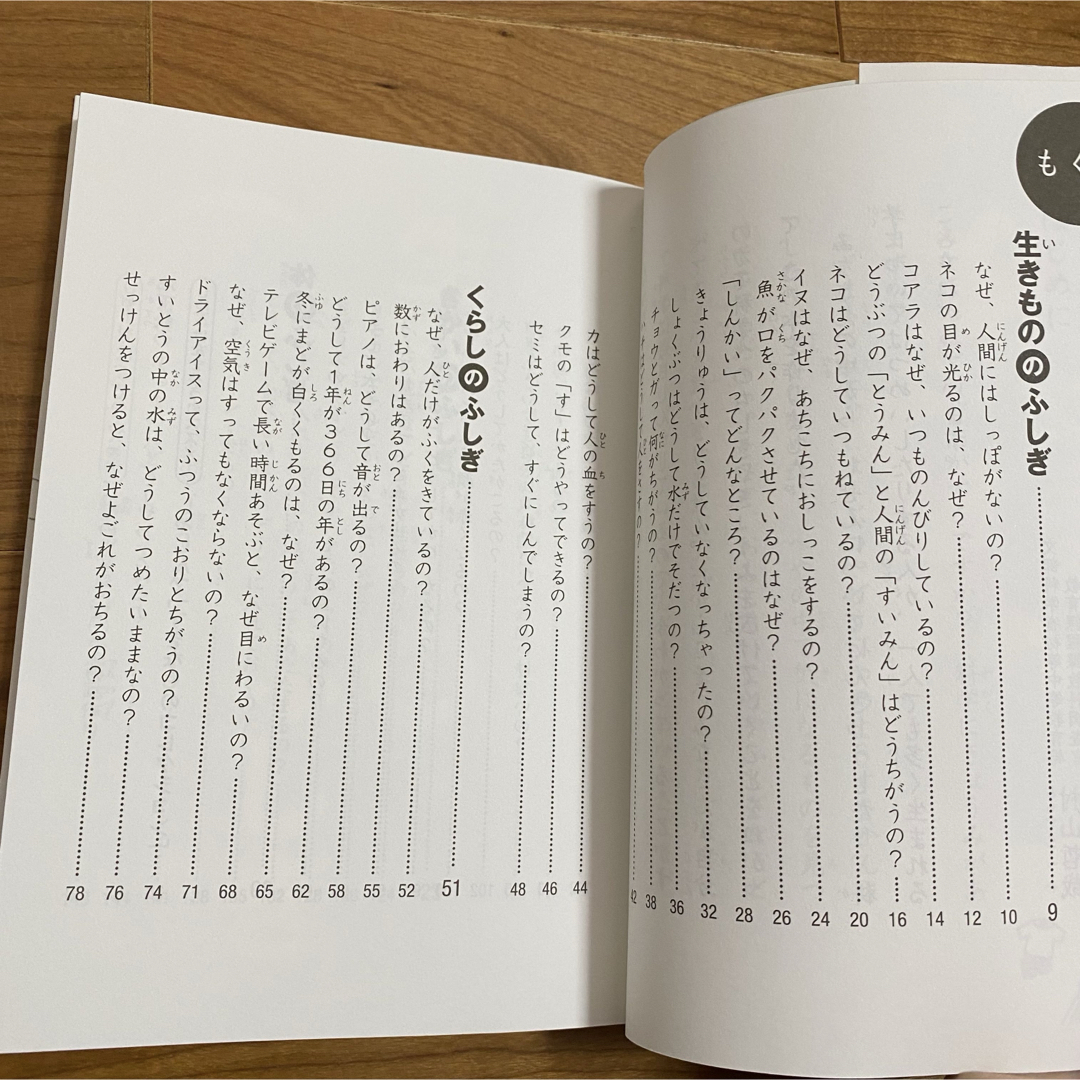 もく
生きもののふしぎ 9
なぜ、人間にはしっぽがないの? 10
ネコの目が光るのは、なぜ? 12
コアラはなぜ、いつものんびりしているの? 14
どうぶつの「とうみん」と人間の「すいみん」はどうちがうの? 16
ネコはどうしていつもねているの? 20
イヌはなぜ、あちこちにおしっこをするの? 24
魚が口をパクパクさせているのはなぜ? 26
「しんかい」ってどんなところ? 28
きょうりゅうは、どうしていなくなっちゃったの? 32
しょくぶつはどうして水だけでそだつの? 36
チョウとガって何がちがうの? 38
42
カはどうして人の血をすうの? 44
クモの「す」はどうやってできるの? 46
セミはどうして、すぐにしんでしまうの? 48
くらしのふしぎ 51
なぜ、人だけがふくをきているの? 52
数におわりはあるの? 55
ピアノは、どうして音が出るの? 58
どうして1年が366日の年があるの? 62
冬にまどが白くくもるのは、なぜ? 65
テレビゲームで長い時間あそぶと、なぜ目にわるいの? 68
なぜ、空気はすってもなくならないの? 71
ドライアイスって、ふつうのこおりとちがうの? 74
すいとうの中の水は、どうしてつめたいままなの? 76
せっけんをつけると、なぜよごれがおちるの? 78